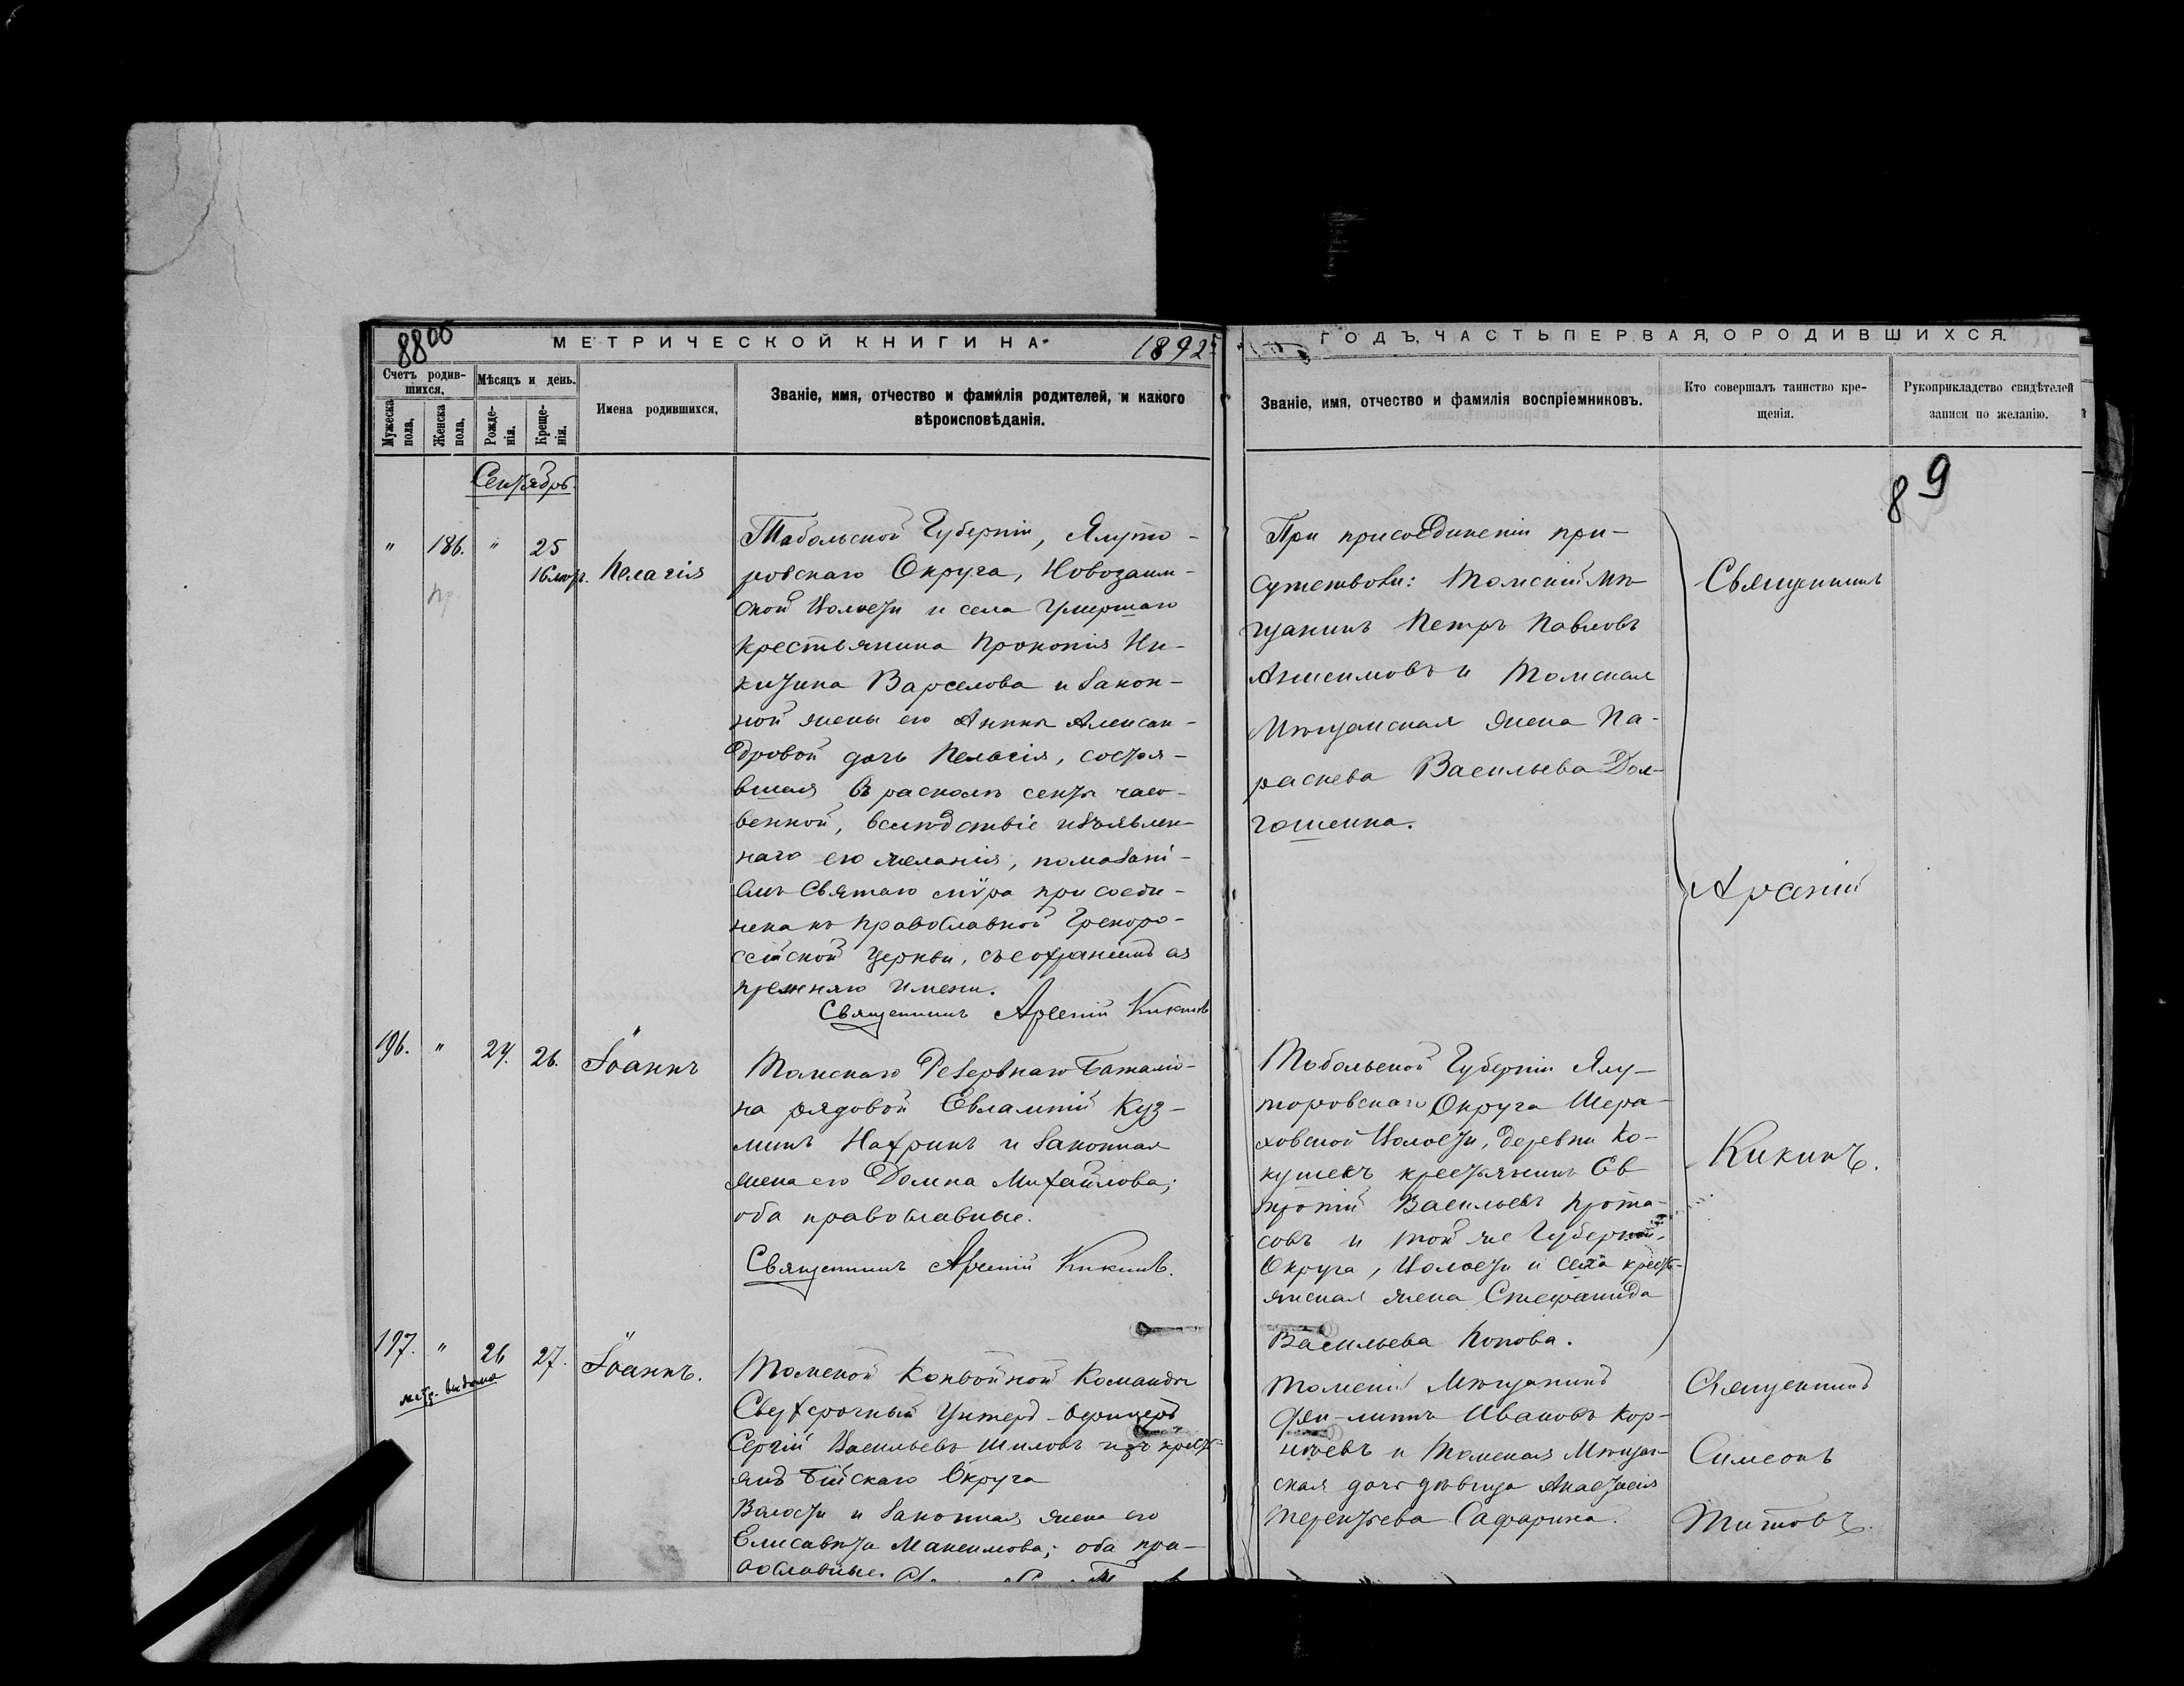 88об
МЕТРИЧЕСКОЙ КНИГИ НА 1892й
ГОДЪ, ЧАСТЬ ПЕРВАЯ, О РОДИВШИХСЯ.
Счетъ родив-
шихся.
Мужеска
пола.
Женска
пола.
Мѣсяцъ и день.
Рожде-
нія.
Креще-
нія.
Имена родившихся.
Званіе, имя, отчество и фамилія родителей, и какого
вѣроисповѣданія.
Званіе, имя, отчество и фамилія воспріемниковъ.
Кто совершалъ таинство кре-
щенія.
Рукоприкладство свидѣтелей
записи по желанію.
89
Сентябрь.
" 186. " 25
Пелагія
Тобольской Губерніи, Ялуто-
ровскаго Округа, Новозаим-
ской Волости и села умершаго
крестьянина Прокопія Ни-
китина Варселова и закон-
ной жены его Анны Алексан-
дровой дочь Пелагія, состоя-
вшая въ расколѣ секты часо-
венной, вслѣдствіе изъявлен-
наго ею желанія, помазані-
емъ Святаго мѵра присоеди-
нена къ православной Грекоро-
ссійской церкви, съ сохраненіемъ ея
прежняго имени.
Священникъ Арсеній Кикинъ
При присоединеніи при-
сутствов: Томскій Мѣ-
щанинъ Петръ Павловъ
Анисимовъ и Томская
Мѣщанская жена Па-
раскева Васильева Дол-
гошеина.
Священникъ
Арсеній
Кикинъ.
196. " 24. 26. Іоаннъ
Томскаго Резервнаго Баталіо-
на рядовой Евлампій Куз-
минъ Нахринъ и законная
жена его Домна Михайлова;
оба православные.
Священникъ Арсеній Кикинъ.
Тобольской Губерніи Ялу-
торовскаго Округа Шера-
ховской Волости, деревни Ко-
кушекъ крестьянинъ Ев-
тропій Васильевъ Прота-
совъ и той же Губерніи,
Округа, Волости и села кресть-
янская жена Стефанида
Васильева Попова.
197. " 26 27. Іоаннъ.
Томской Конвойной Команды
Сверхсрочный Унтеръ-Офицеръ
Сергій Васильевъ Шиловъ изъ кресть-
янъ Бійскаго Округа
Волости и законная жена его
Елисавета Максимова; оба пра-
вославные.
Томскій Мѣщанинъ
Фи-липпъ Ивановъ Кор-
ніевъ и Томская Мѣщан-
ская дочь дѣвица Анастасія
Терентьева Сафарина.
Священникъ
Симеонъ
Титовъ.